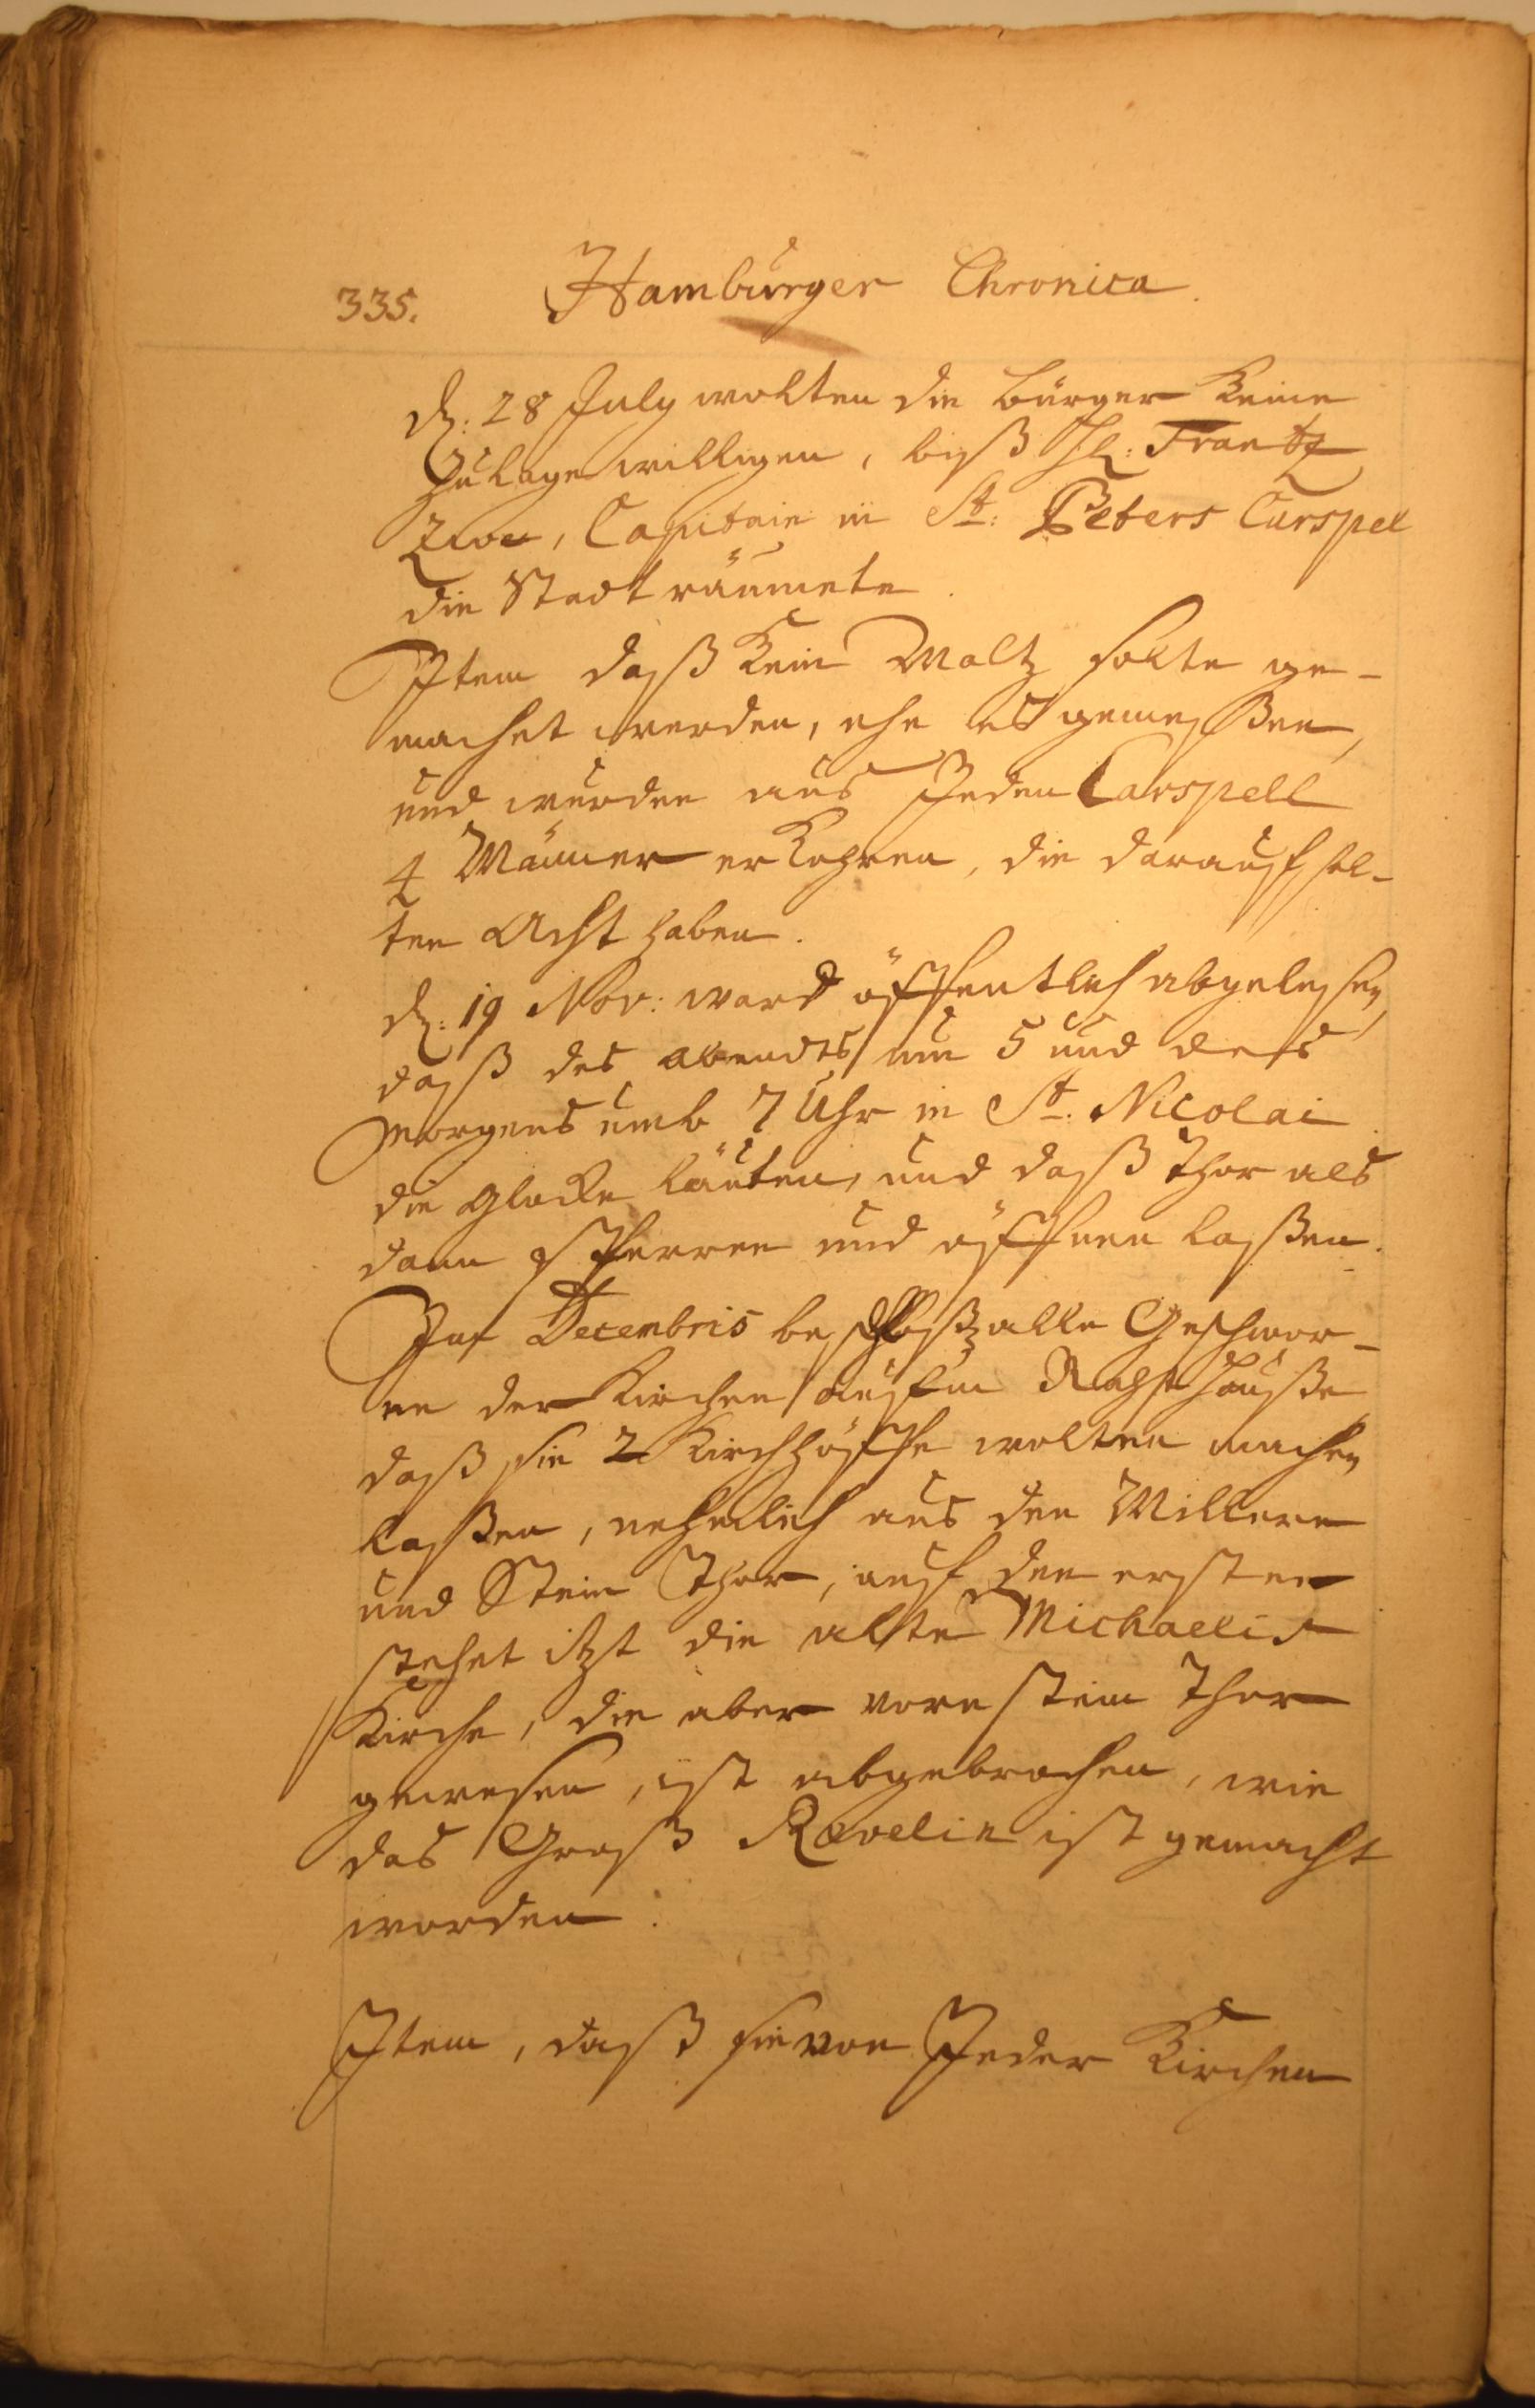 335. Hamburger Chronica.
d. 28 July wolten die bürger Keine
Zulage willigen, biß H: Frantz
Capitain in St: Peters Carspel
die Stadt räumete.
Item daß Kein Maltz solte ge-
machet werden, ehe es gemeßen,
und wurden aus Jeden Carspell
4 Männer erKohren, die darauf sol-
ten Acht haben.
d. 19 Nov: ward öffentlich abgelesen,
daß des abendts um 5 und des
Morgens umb 7 Uhr in St. Nicolai
die Glocke läuten, und daß Thor als
dann sperren und öffnen laßen.
Im Decembris beschloß alle Geschwor-
ne der Kirchen aufm Rahthauße
daß sie 2 Kirchhöffe wolten machen
laßen, nehmlich aus den Millern
und Stein Thor, auf den ersten
stehet itzt die alte Michaelis
Kirche, die aber vorn stein Thor
gewesen, ist abgebrochen, wie
das Groß Ravelin ist gemacht
worden.
Item, daß sie von Jeder Kirchen